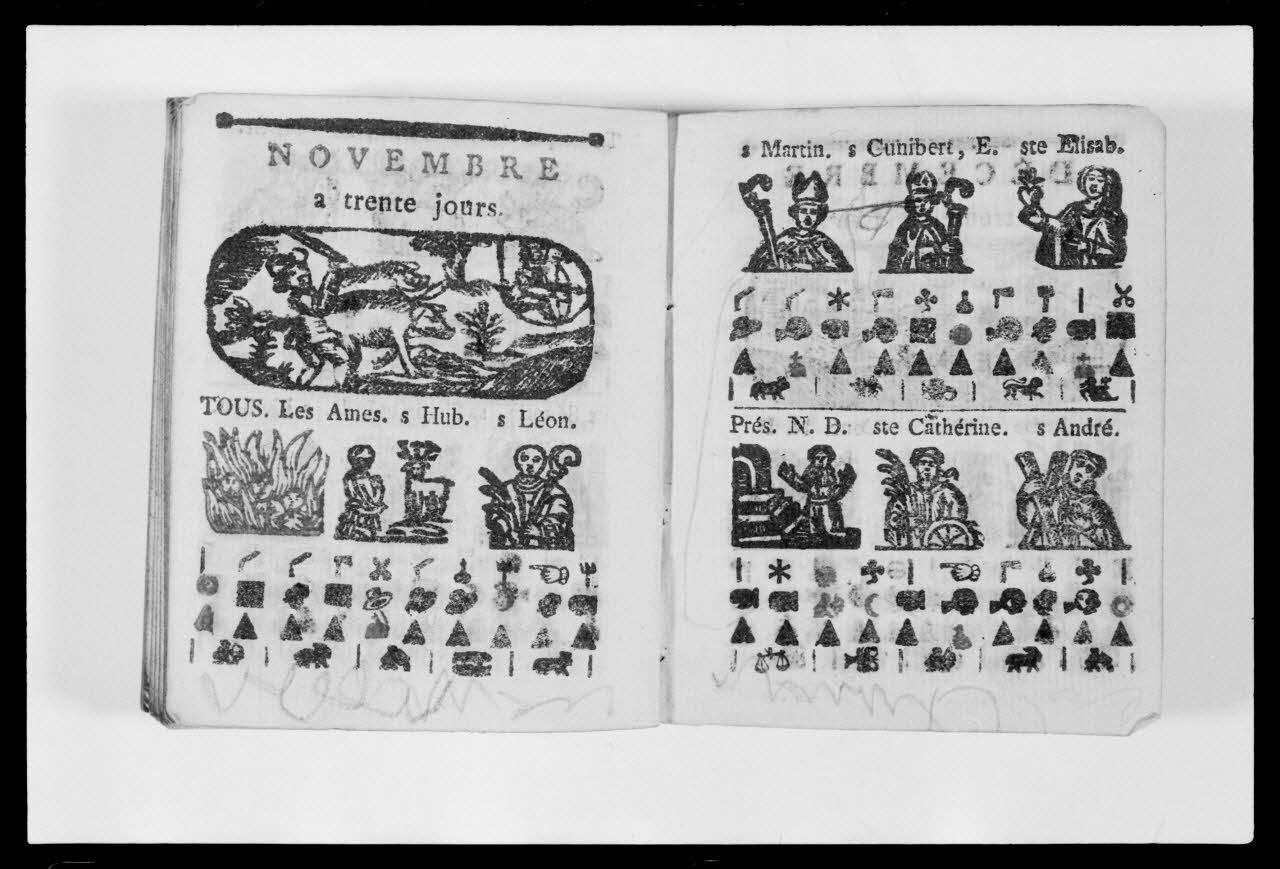 NOVEMBRE
a trente jours.
TOUS. Les Ames. s Hub. s Léon.
s Martin. s Cunibert, E. ste Elisab.
Prés. N. D. ste Cathérine. s André.